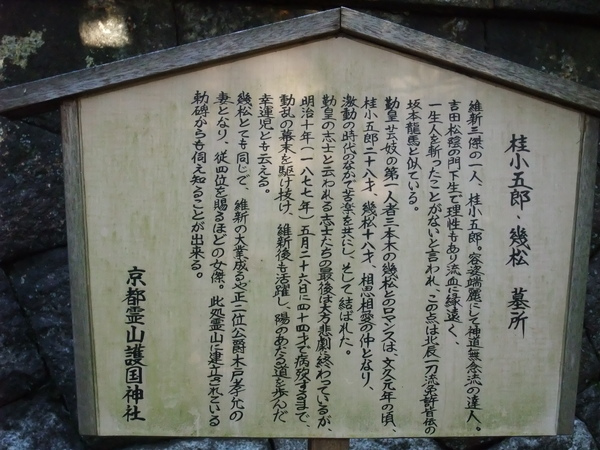 桂小五郎・幾松　墓所
維新三傑の一人、桂小五郎。容姿端麗にして神道無念流の達人。
吉田松陰の門下生で理性もあり流血に縁遠く、
一生人を斬ったことがないと言われ、この点は北辰一刀流免許皆伝の
坂本龍馬と似ている。
勤皇芸妓の第一人者三本木の幾松とのロマンスは、文久元年の頃、
桂小五郎二十八才、幾松十八才、相思相愛の仲となり、
激動の時代のなかで苦楽を共にし、そして結ばれた。
勤皇の志士と云われる志士たちの最後は大方悲劇に終わっているが、
明治十年（一八七七年）五月二十六日に四十四才で病死するまで、
動乱の幕末を駆け抜け、維新後も活躍し、陽のあたる道を歩んだ
幸運児とも云える。
幾松とても同じで、維新の大業成るや正二位公爵木戸孝允の
妻となり、従四位を賜るほどの女傑。此処霊山に建立されている
勅碑からも伺え知ることが出来る。
京都霊山護国神社